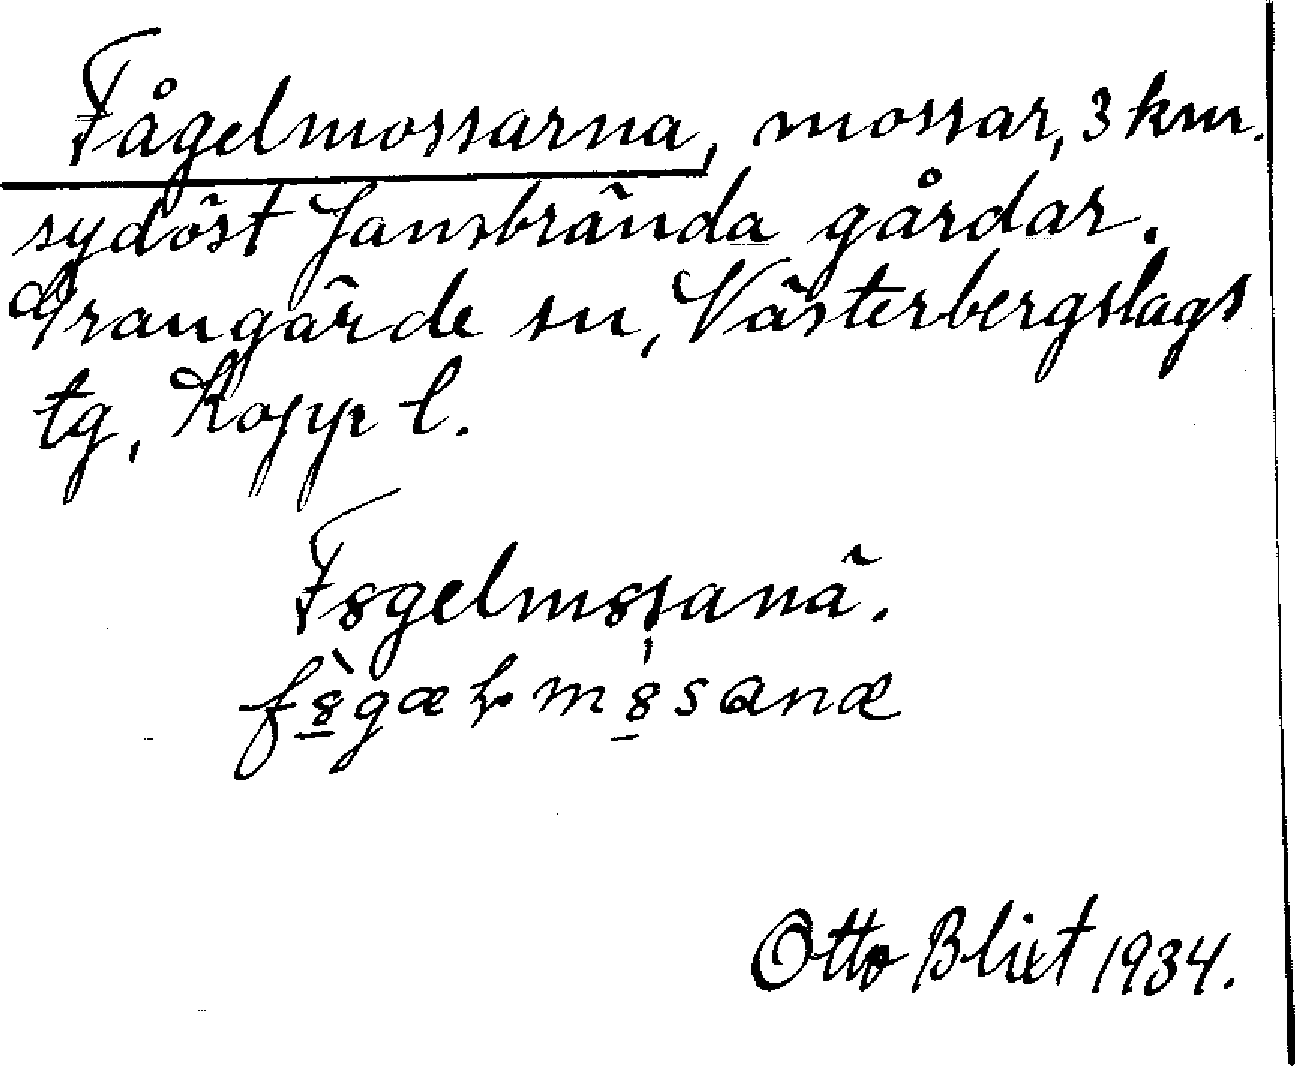 Fågelmossarna, mossar, 3 km.
sydöst Jansbrända gårdar.
Grangärde sn, Västerbergslags
tg, Kopp l.
F8gelm8ssanä.
f8̀gæɫm8̀sanæ
Otto Blixt 1934.